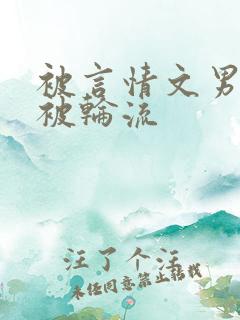 被言情文男
被輪流
汪了个汪
未经同意禁止转载